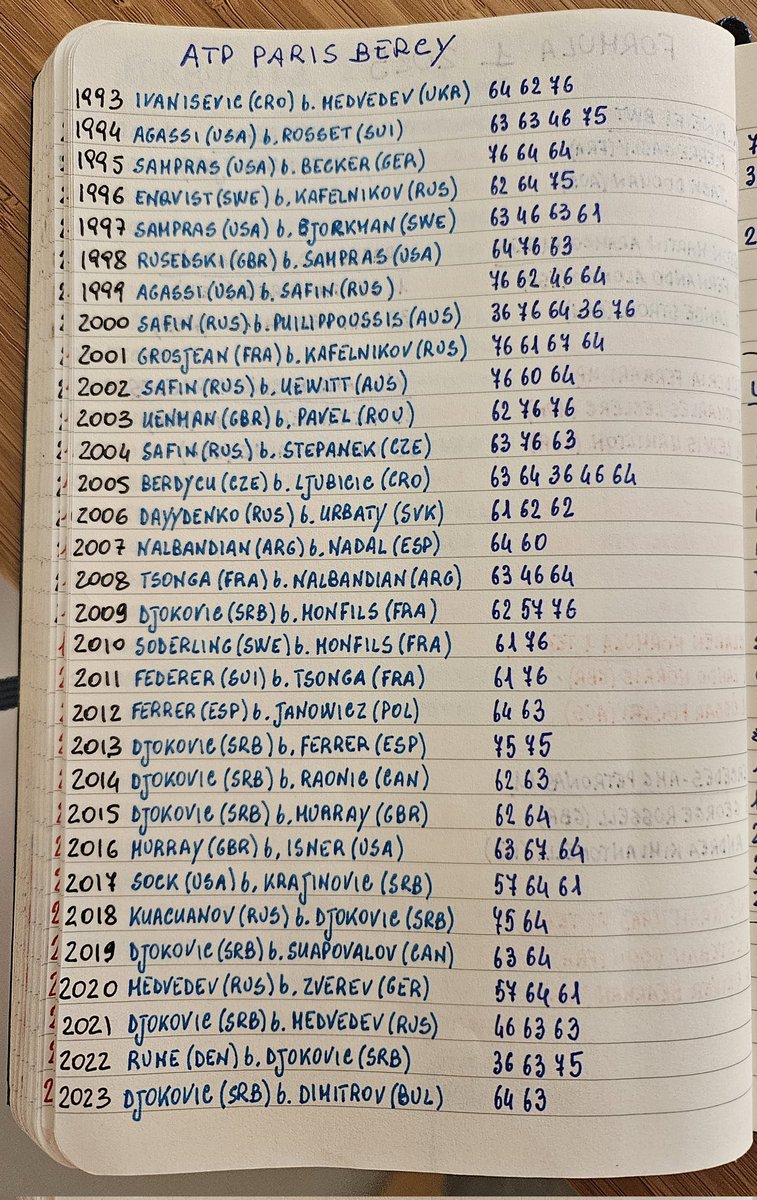 ATP PARIS BERCY
1993 IVANISEVIC (CRO) b. MEDVEDEV (UKR) 64 62 76
1994 AGASSI (USA) b. ROSSET (SUI) 63 63 46 75
1995 SAMPRAS (USA) b. BECKER (GER) 76 64 64
1996 ENQVIST (SWE) b. KAFELNIKOV (RUS) 62 64 75
1997 SAMPRAS (USA) b. BJORKMAN (SWE) 63 46 63 61
1998 RUSEDSKI (GBR) b. SAMPRAS (USA) 64 76 63
1999 AGASSI (USA) b. SAFIN (RUS) 76 62 46 64
2000 SAFIN (RUS) b. PHILIPPOUSSIS (AUS) 36 76 64 36 76
2001 GROSJEAN (FRA) b. KAFELNIKOV (RUS) 76 61 67 64
2002 SAFIN (RUS) b. HEWITT (AUS) 76 60 64
2003 HENMAN (GBR) b. PAVEL (ROU) 62 76 76
2004 SAFIN (RUS) b. STEPANEK (CZE) 63 76 63
2005 BERDYCH (CZE) b. LJUBICIC (CRO) 63 64 36 46 64
2006 DAVYDENKO (RUS) b. HRBATY (SVK) 61 62 62
2007 NALBANDIAN (ARG) b. NADAL (ESP) 64 60
2008 TSONGA (FRA) b. NALBANDIAN (ARG) 63 46 64
2009 DJOKOVIC (SRB) b. MONFILS (FRA) 62 57 76
2010 SODERLING (SWE) b. MONFILS (FRA) 61 76
2011 FEDERER (SUI) b. TSONGA (FRA) 61 76
2012 FERRER (ESP) b. JANOWICZ (POL) 64 63
2013 DJOKOVIC (SRB) b. FERRER (ESP) 75 75
2014 DJOKOVIC (SRB) b. RAONIC (CAN) 62 63
2015 DJOKOVIC (SRB) b. MURRAY (GBR) 62 64
2016 MURRAY (GBR) b. ISNER (USA) 63 67 64
2017 SOCK (USA) b. KRAJINOVIC (SRB) 57 64 61
2018 KHACHANOV (RUS) b. DJOKOVIC (SRB) 75 64
2019 DJOKOVIC (SRB) b. SHAPOVALOV (CAN) 63 64
2020 MEDVEDEV (RUS) b. ZVEREV (GER) 57 64 61
2021 DJOKOVIC (SRB) b. MEDVEDEV (RUS) 46 63 63
2022 RUNE (DEN) b. DJOKOVIC (SRB) 36 63 75
2023 DJOKOVIC (SRB) b. DIMITROV (BUL) 64 63